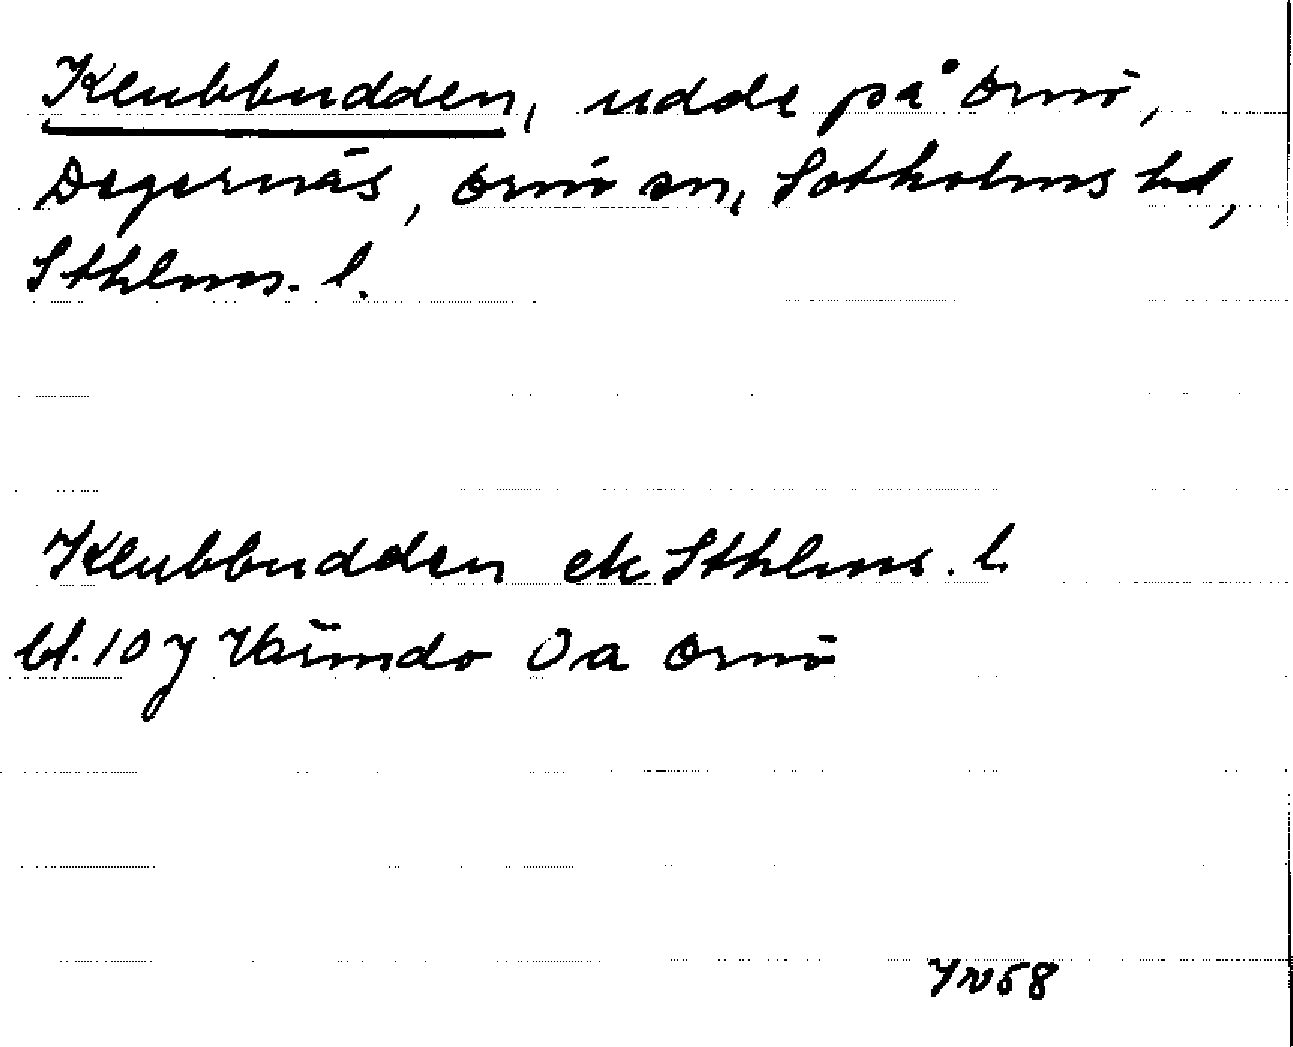 Klubbudden, udde på Ornö,
Degernäs, Ornö sn, Sotholms hd,
Sthlms. l.
Klubbudden ek Sthlms. l.
bl. 107 Värmdö Öa Ornö